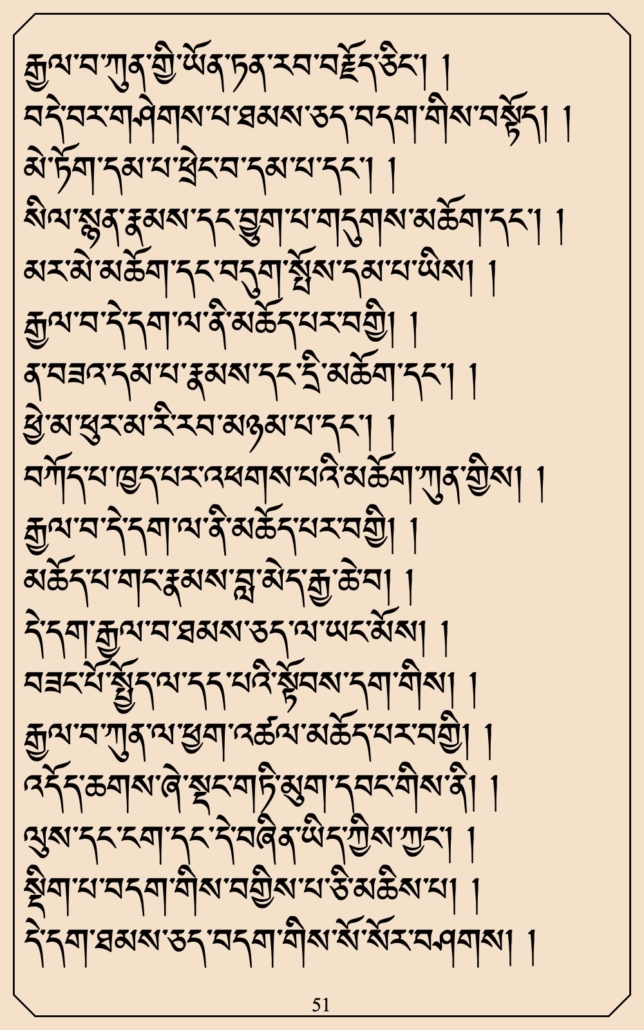 རྒྱལ་བ་ཀུན་གྱི་ཡོན་ཏན་རབ་བརྗོད་ཅིང་། །
བདེ་བར་གཤེགས་པ་ཐམས་ཅད་བདག་གིས་བསྟོད། །
མེ་ཏོག་དམ་པ་ཕྲེང་བ་དམ་པ་དང་། །
སིལ་སྙན་རྣམས་དང་བྱུག་པ་གདུགས་མཆོག་དང་། །
མར་མེ་མཆོག་དང་བདུག་སྤོས་དམ་པ་ཡིས། །
རྒྱལ་བ་དེ་དག་ལ་ནི་མཆོད་པར་བགྱི། །
ན་བཟའ་དམ་པ་རྣམས་དང་དྲི་མཆོག་དང་། །
ཕྱེ་མ་ཕུར་མ་རི་རབ་མཉམ་པ་དང་། །
བཀོད་པ་ཁྱད་པར་འཕགས་པའི་མཆོག་ཀུན་གྱིས། །
རྒྱལ་བ་དེ་དག་ལ་ནི་མཆོད་པར་བགྱི། །
མཆོད་པ་གང་རྣམས་བླ་མེད་རྒྱ་ཆེ་བ། །
དེ་དག་རྒྱལ་བ་ཐམས་ཅད་ལ་ཡང་མོས། །
བཟང་པོ་སྤྱོད་ལ་དད་པའི་སྟོབས་དག་གིས། །
རྒྱལ་བ་ཀུན་ལ་ཕྱག་འཚལ་མཆོད་པར་བགྱི། །
འདོད་ཆགས་ཞེ་སྡང་གཏི་མུག་དབང་གིས་ནི། །
ལུས་དང་ངག་དང་དེ་བཞིན་ཡིད་ཀྱིས་ཀྱང་། །
སྡིག་པ་བདག་གིས་བགྱིས་པ་ཅི་མཆིས་པ། །
དེ་དག་ཐམས་ཅད་བདག་གིས་སོ་སོར་བཤགས། །
51